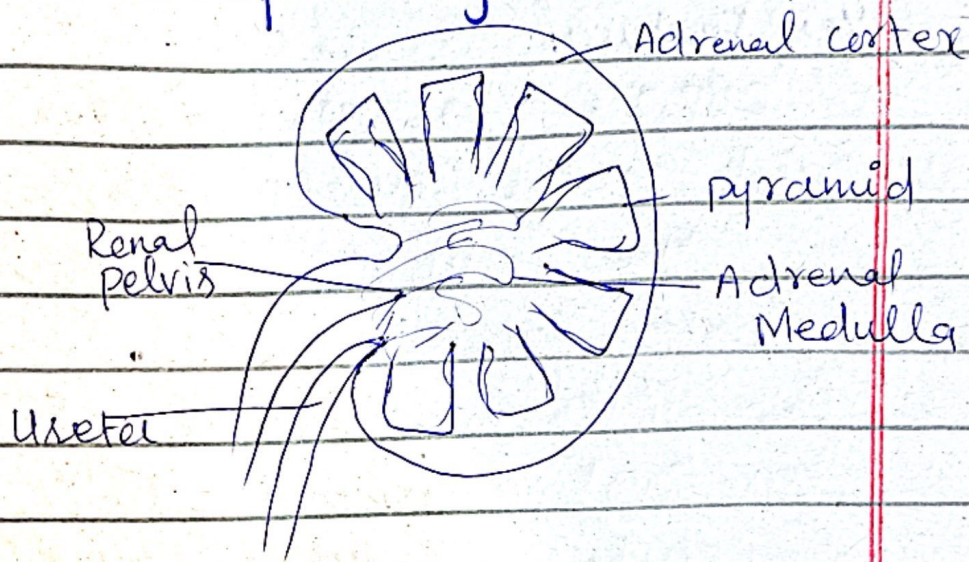 Adrenal cortex
pyramid
Renal
pelvis
Adrenal
Medulla
Ureter